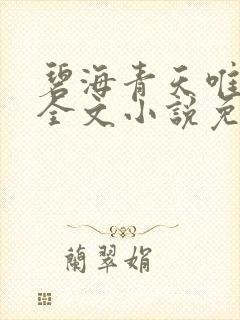 碧海青天唯
全文小說免
蘭翠娟